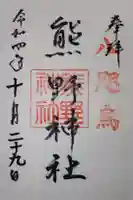 奉拝
八咫烏
熊野神社
令和四年十月二十九日